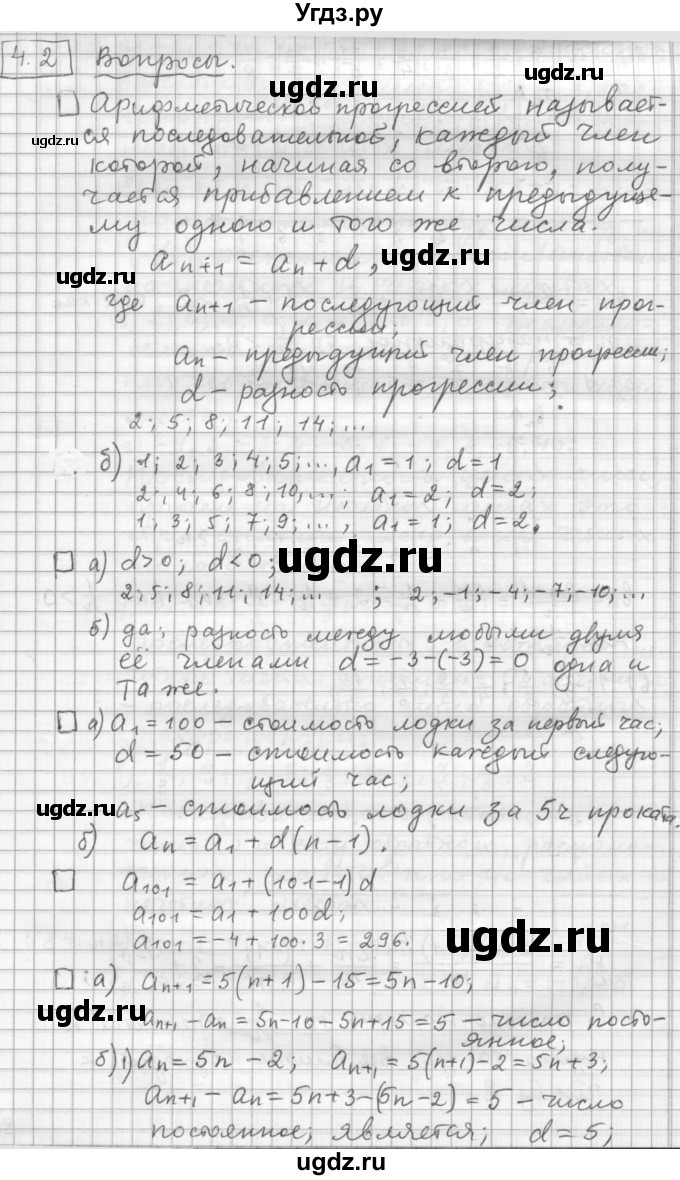 Угдз.ру
4.2 Вопросы.
ugdz.ru ugdz.ru
□ Арифметической прогрессией называет-
ugdz.ru ся последовательной, каждый член
которой, начиная со второго, полу-
чается прибавлением к предыдуще-
му одного и того же числа.
ugdz.ru aₙ₊₁ = aₙ + d, ugdz.ru
где aₙ₊₁ – последующий член прог-
рессии;
aₙ – предыдущий член прогрессии;
d – разность прогрессии;
2; 5; 8; 11; 14; ...
б) 1; 2; 3; 4; 5; ..., a₁ = 1; d = 1
2; 4; 6; 8; 10, ...; a₁ = 2; d = 2;
1; 3; 5; 7; 9; ..., a₁ = 1; d = 2.
□ а) d > 0; d < 0; ugdz.ru
2; 5; 8; 11; 14; ... ; 2, -1; -4; -7; -10; ...
б) да; разность между любыми двумя
её членами d = -3-(-3) = 0 одна и
та же.
□ а) a₁ = 100 – стоимость лодки за первый час;
d = 50 – стоимость каждый следую-
щий час;
ugdz.ru a₅ – стоимость лодки за 5ч проката.
б) aₙ = a₁ + d(n-1).
□ a₁₀₁ = a₁ + (101-1)d
a₁₀₁ = a₁ + 100d;
a₁₀₁ = -4 + 100·3 = 296. ugdz.ru
□ а) aₙ₊₁ = 5(n+1) - 15 = 5n - 10;
ugdz.ru aₙ₊₁ - aₙ = 5n - 10 - 5n + 15 = 5 – число посто-
янное;
б) 1) aₙ = 5n - 2; aₙ₊₁ = 5(n+1) - 2 = 5n + 3;
aₙ₊₁ - aₙ = 5n + 3 - (5n - 2) = 5 – число
постоянное; является; d = 5;
ugdz.ru